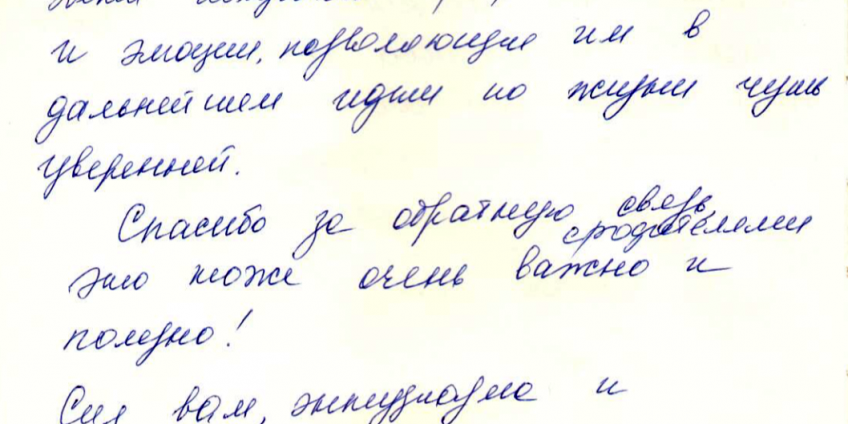 и эмоции, позволяющие им в
дальнейшем идти по жизни чуть
уверенней.
Спасибо за обратную связь
с родителями
это тоже очень важно и
полезно!
Сил вам, энтузиазма и